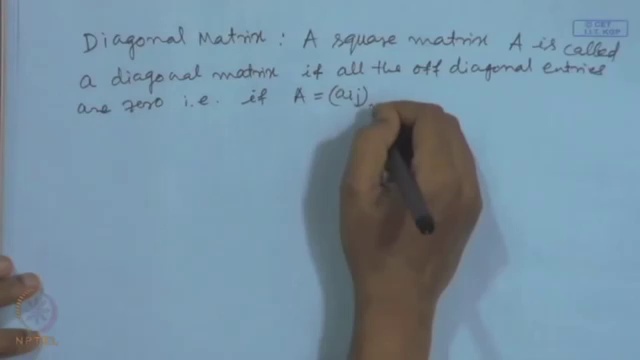 © CET
I.I.T. KGP
Diagonal Matrix : A square matrix A is called
a diagonal matrix if all the off diagonal entries
are zero i.e. if A = (aij)
NPTEL